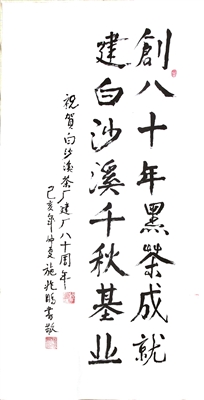 創八十年黑茶成就
建白沙溪千秋基业
祝賀白沙溪茶厂建厂八十周年
己亥年仲夏施兆鵬書敬